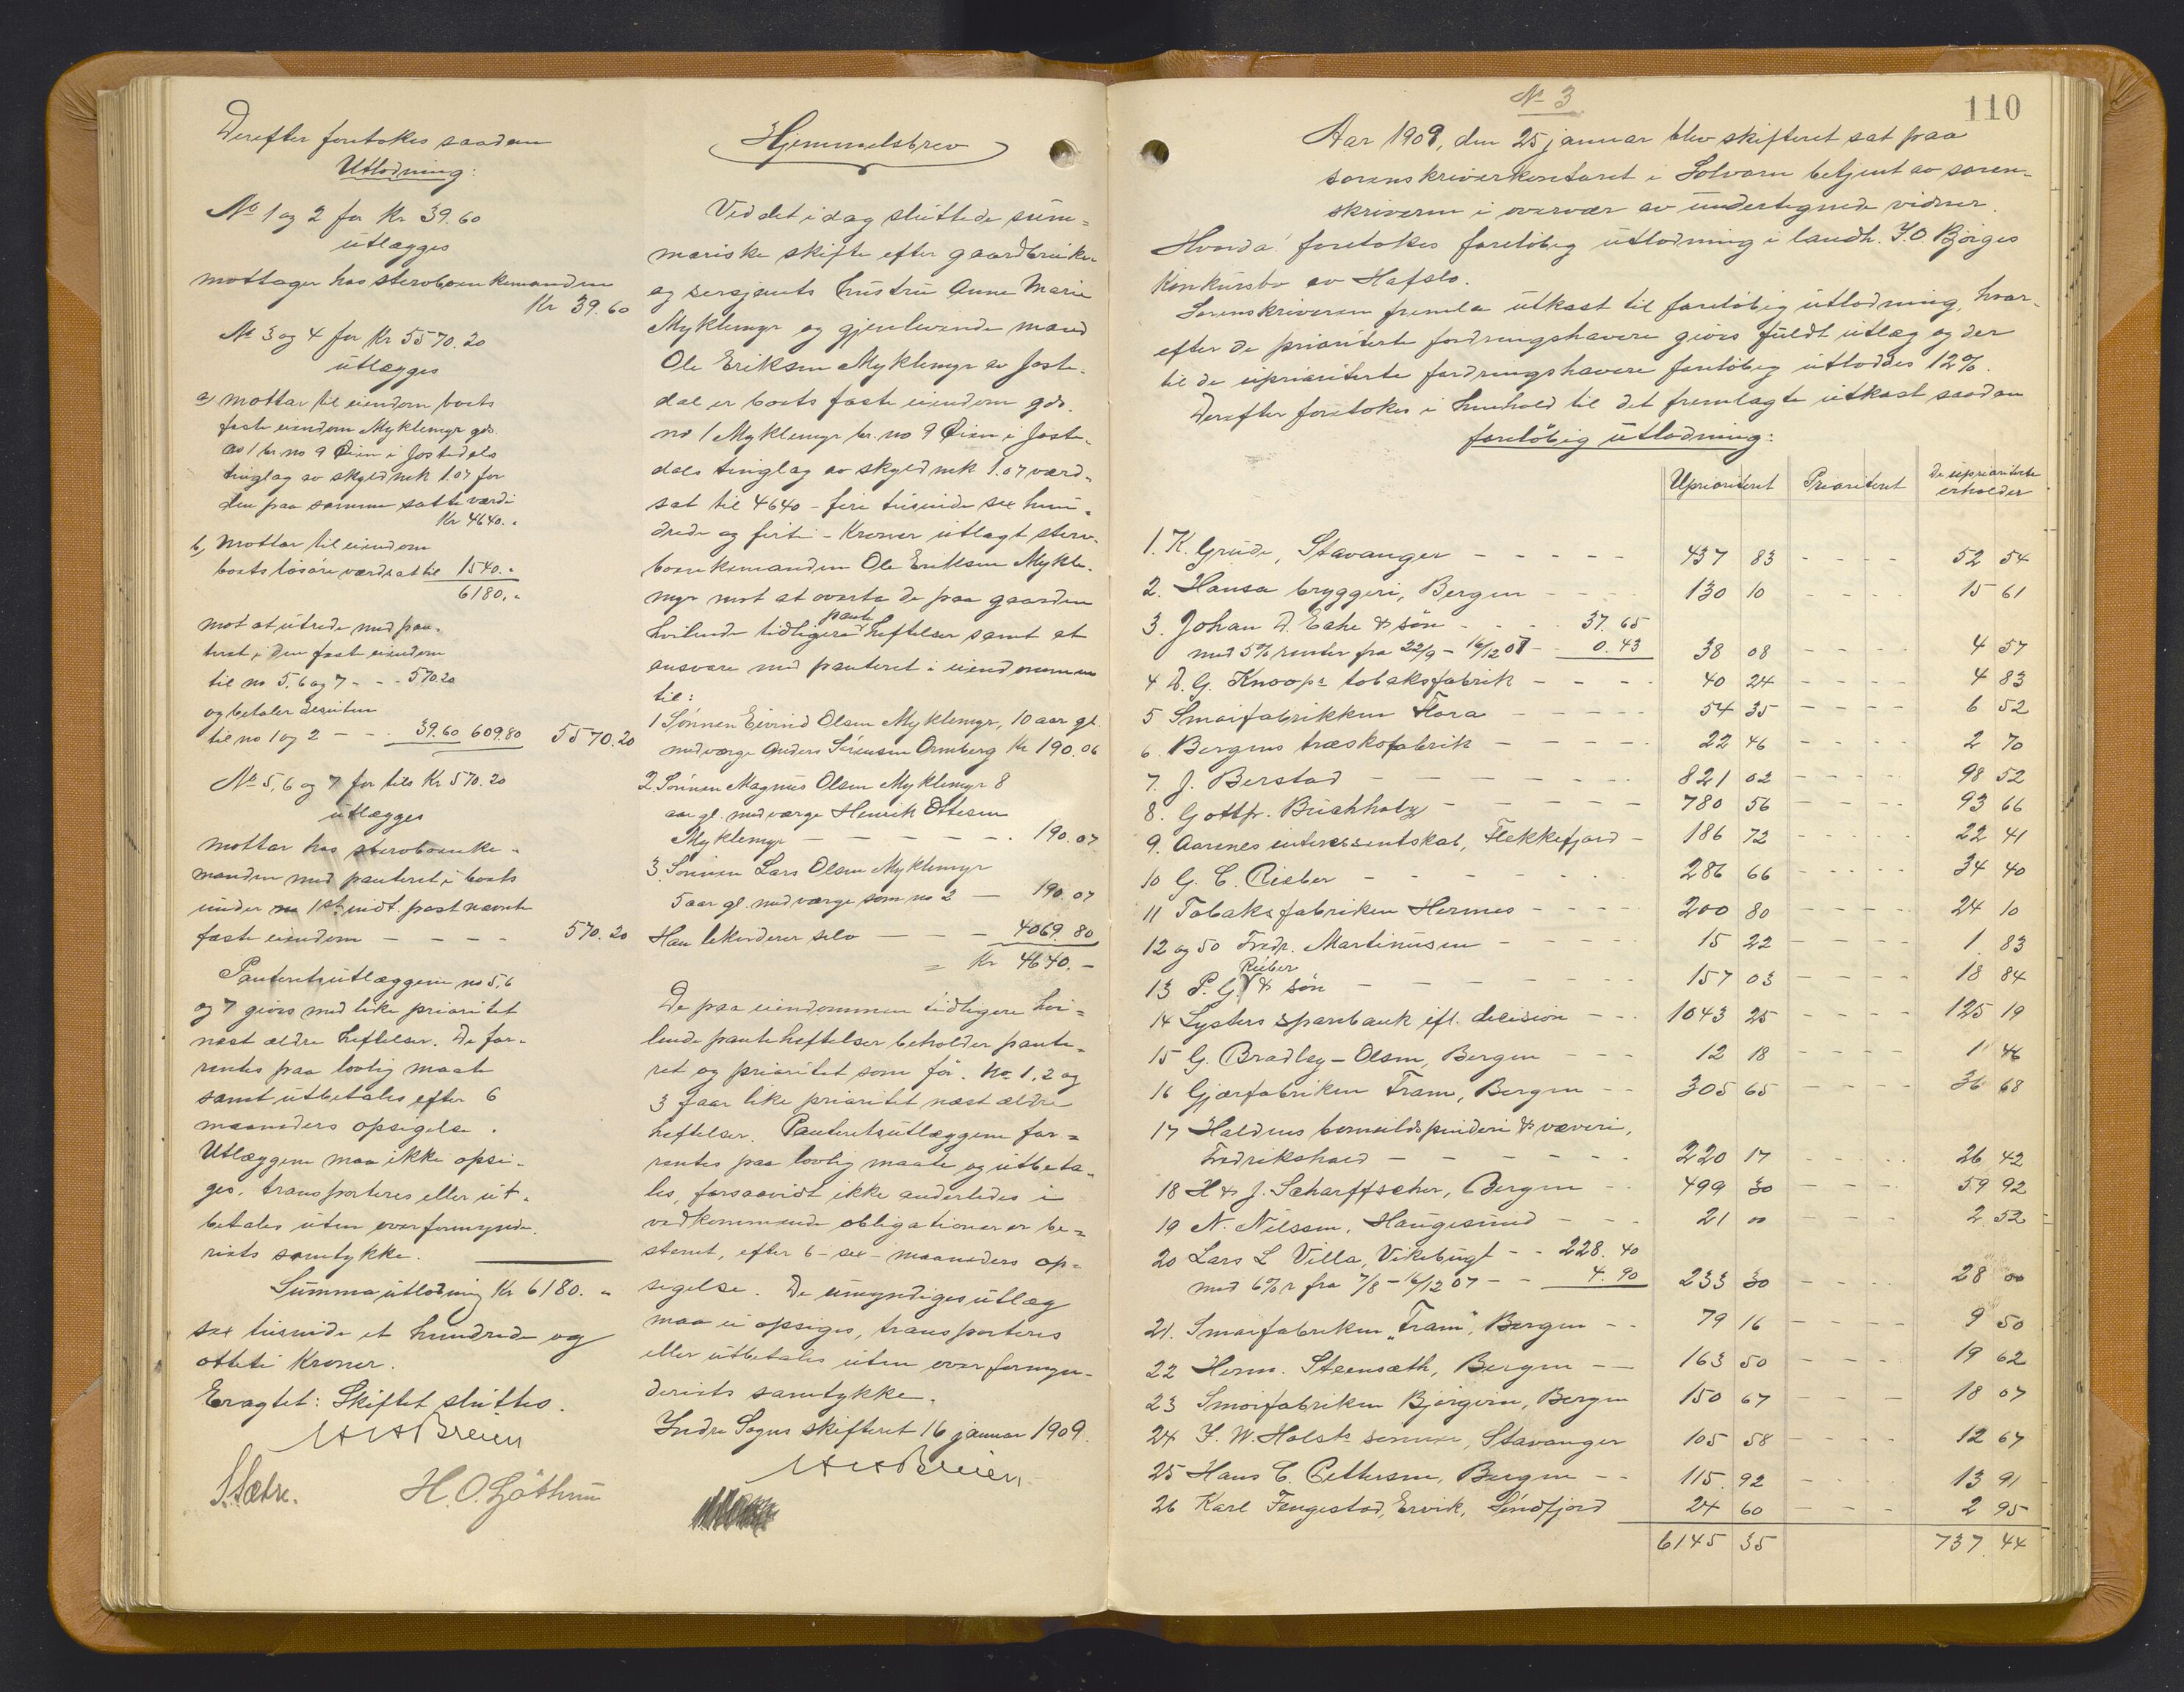 Derefter foretokes saadan
Utlodning:
No 1 og 2 for Kr 39.60
utlægges
mottager hos stervboenkemanden
Kr 39.60
No 3 og 4 for Kr 5570.20
utlægges
a, mottar til eiendom boets
faste eiendom Myklemyr gds
no 1 br. no 9 Øien i Jostedals
tinglag av skyld mk 1.07 for
den paa samme satte værdi
Kr 4640. "
b, mottar til eiendom
boets løsøre værdsat til 1540. "
6180. "
mot at utrede med pan-
teret i den faste eiendom
til no 5, 6 og 7 - - - 570.20
og betaler desuten
til no 1 og 2 - - - 39.60 609.80 5570.20
No 5, 6 og 7 for tils Kr 570.20
utlægges
mottar hos stervboenke-
manden med panteret i boets
under no 1 st. indt. post nævnte
faste eiendom - - - - 570.20
Panteretsutlæggene no 5, 6
og 7 gives med like prioritet
næst ældre heftelser. De for-
rentes paa lovlig maate
samt utbetales efter 6
maaneders opsigelse.
Utlæggene maa ikke opsi-
ges, transporteres eller ut-
betales uten overformynde-
riets samtykke.
Summa utlodning Kr 6180. "
sex tusinde et hundrede og
otteti Kroner.
Eragtet: Skiftet sluttes.
HHBreien
S. Sætre. H. O. Gjöthun
Hjemmelsbrev
Ved det i dag sluttede sum-
mariske skifte efter gaardbruker
og sersjants hustru Anne Marie
Myklemyr og gjenlevende mand
Ole Eriksen Myklemyr av Joste-
dal er boets faste eiendom gds.
no 1 Myklemyr br. no 9 Øien i Joste-
dals tinglag av skyld mk 1.07 værd-
sat til 4640 - fire tusinde sex hun-
drede og firti - Kroner utlagt sterv-
boenkemanden Ole Eriksen Mykle-
myr mot at overta de paa gaarden
hvilende tidligere pante heftelser samt at
ansvare med panteret i eiendommen
til:
1 Sønnen Eivind Olsen Myklemyr, 10 aar gl.
med værge Anders Sørensen Ormberg Kr 190.06
2. Sønnen Magnus Olsen Myklemyr 8
aar gl. med værge Henrik Ottesen
Myklemyr - - - - - - 190.07
3. Sønnen Lars Olsen Myklemyr
5 aar gl. med værge som no 2 - 190.07
Han likviderer selv - - - 4069.80
= Kr 4640. -
De paa eiendommen tidligere hvi-
lende panteheftelser beholder pante-
ret og prioritet som før. No 1, 2 og
3 faar like prioritet næst ældre
heftelser. Panteretsutlæggene for-
rentes paa lovlig maate og utbeta-
les, forsaavidt ikke anderledes i
vedkommende obligationer er be-
stemt, efter 6 - sex - maaneders op-
sigelse. De umyndiges utlæg
maa ei opsiges, transporteres
eller utbetales uten overformyn-
deriets samtykke.
Indre Sogns skifteret 16 januar 1909.
HHBreien
No 3
110
Aar 1909, den 25 januar blev skifteret sat paa
sorenskriverkontoret i Solvorn betjent av soren-
skriveren i overvær av undertegnede vidner.
Hvorda foretokes foreløbig utlodning i landh. J. O. Bjørges
Konkursbo av Hafslo.
Sorenskriveren fremla utkast til foreløbig utlodning, hvor-
efter de prioriterte fordringshavere gives fuldt utlæg og der
til de uprioriterte fordringshavere foreløbig utloddes 12%.
Derefter foretokes i henhold til det fremlagte utkast saadan
foreløbig utlodning:
Uprioritert Prioritert De uprioriterte erholder
1. K. Grude, Stavanger - - - - - 437 83 - - - - 52 54
2. Hansa bryggeri, Bergen - - - - 130 10 - - - - 15 61
3. Johan D. Eche & søn - - - - 37.65
med 5% renter fra 22/9 - 16/12 07 - 0.43 38 08 - - - - 4 57
4 D. G. Knoops tobaksfabrik - - - - 40 24 - - - - 4 83
5 Smørfabrikken Flora - - - - 54 35 - - - - 6 52
6. Bergens træskofabrik - - - - 22 46 - - - - 2 70
7. J. Berstad - - - - - - 821 02 - - - - 98 52
8. Gottfr. Buchholz - - - - - 780 56 - - - - 93 66
9. Aarenes interessentskab, Flekkefjord - 186 72 - - - - 22 41
10 G. C. Rieber - - - - - - 286 66 - - - - 34 40
11 Tobaksfabriken Hermes - - - - 200 80 - - - - 24 10
12 og 50 Fredr. Martinusen - - - - 15 22 - - - - 1 83
13 P. G. Rieber & søn - - - - - - 157 03 - - - - 18 84
14 Lysters sparebank eft. decision - - - 1043 25 - - - - 125 19
15 G. Bradley-Olsen, Bergen - - - 12 18 - - - - 1 46
16 Gjærfabriken Fram, Bergen - - 305 65 - - - - 36 68
17 Haldens bomuldspinderi & væveri,
Fredrikshald - - - - - - 220 17 - - - - 26 42
18 H & J. Scharffscher, Bergen - - 499 30 - - - - 59 92
19 N. Nilssen, Haugesund - - - 21 00 - - - - 2 52
20 Lars L Villa, Vikebugt - - 228.40
med 6% r fra 7/8 - 16/12 07 - - 4.90 233 30 - - - - 28 00
21. Smørfabriken "Fram", Bergen - - 79 16 - - - - 9 50
22 Herm. Steensæth, Bergen - - 163 50 - - - - 19 62
23 Smørfabriken Bjørgvin, Bergen 150 67 - - - - 18 07
24 F. W. Holsts sønner, Stavanger 105 58 - - - - 12 67
25 Hans C. Pettersen, Bergen - - 115 92 - - - - 13 91
26 Karl Fengestad, Ervik, Søndfjord 24 60 - - - 2 95
6145 35 737 44